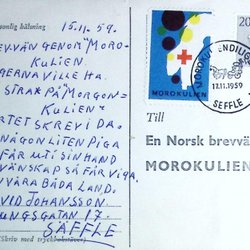 sonlig hälsning
15.11.59.
REVVÄN GENOM "MORO-
KULIEN
GERNA VILLE HA.
STRAX PÅ "MORGON-
KULIEN"
RTET SKREV I DA.
NÅGON LITEN PIGA
FÅR UTI SIN HAND
VÄNSKAP SÅ FÅR VI GA.
VÅRA BÅDA LAND.
VID JOHANSSON
UNGSGATAN 17.
SÄFFLE
(Skriv med tryckbokstäver)
MOROKULIEN
MOROKULIENDILIGENS
17.11.1959
SEFFLE
20
Till
En Norsk brevvä
MOROKULIEN